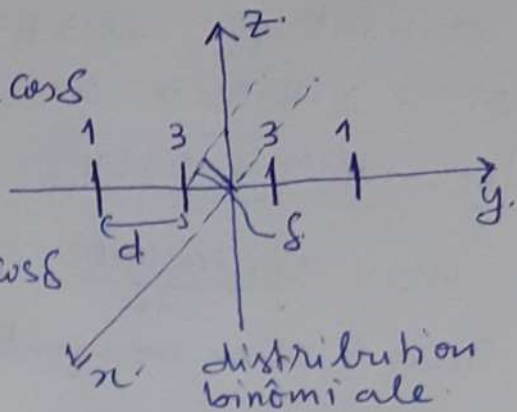 z.
cosδ
1 3 3 1
y.
d
δ.
cosδ
x.
distribution
binômiale